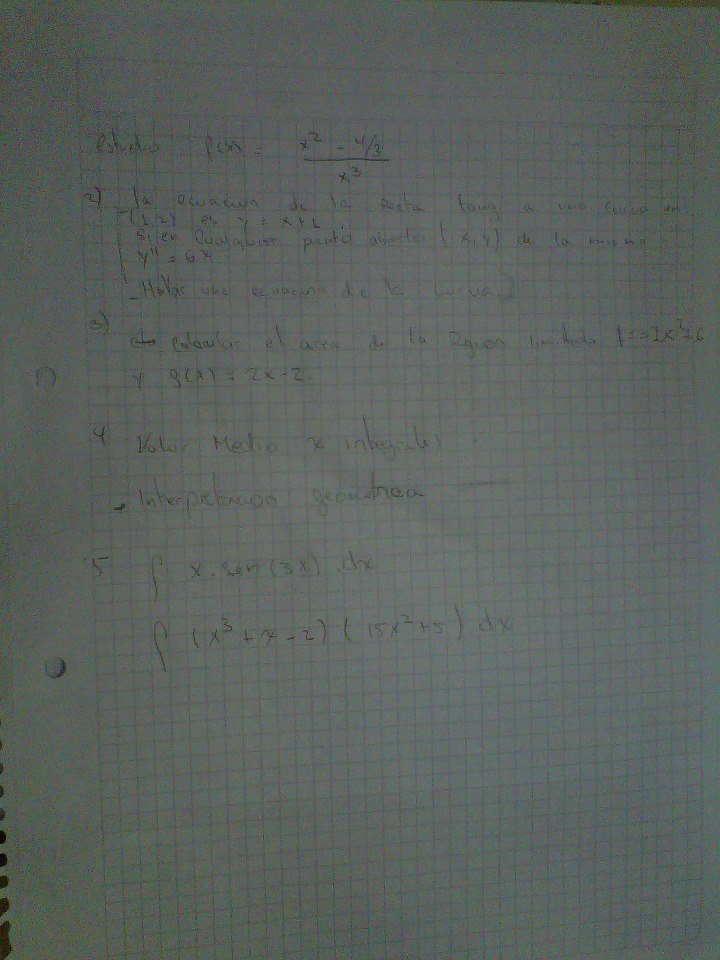 Estudio f(x) = x² - 4/3 / x³
2) La ecuación de la recta tang a una curva en
(1,2) es y = x+1
Si en cualquier punto (x,y) de la misma
y" = 6x
- Hallar una ecuacion de la curva
3)
calcular el area de la Region limitada
1) y g(x) = 2x-2
4 Valor Medio x integrales
Interpretacion geometrica
5 ∫ x. sen (3x) . dx
∫ (x³ + x - 2) ( 15x² + 5 ) dx